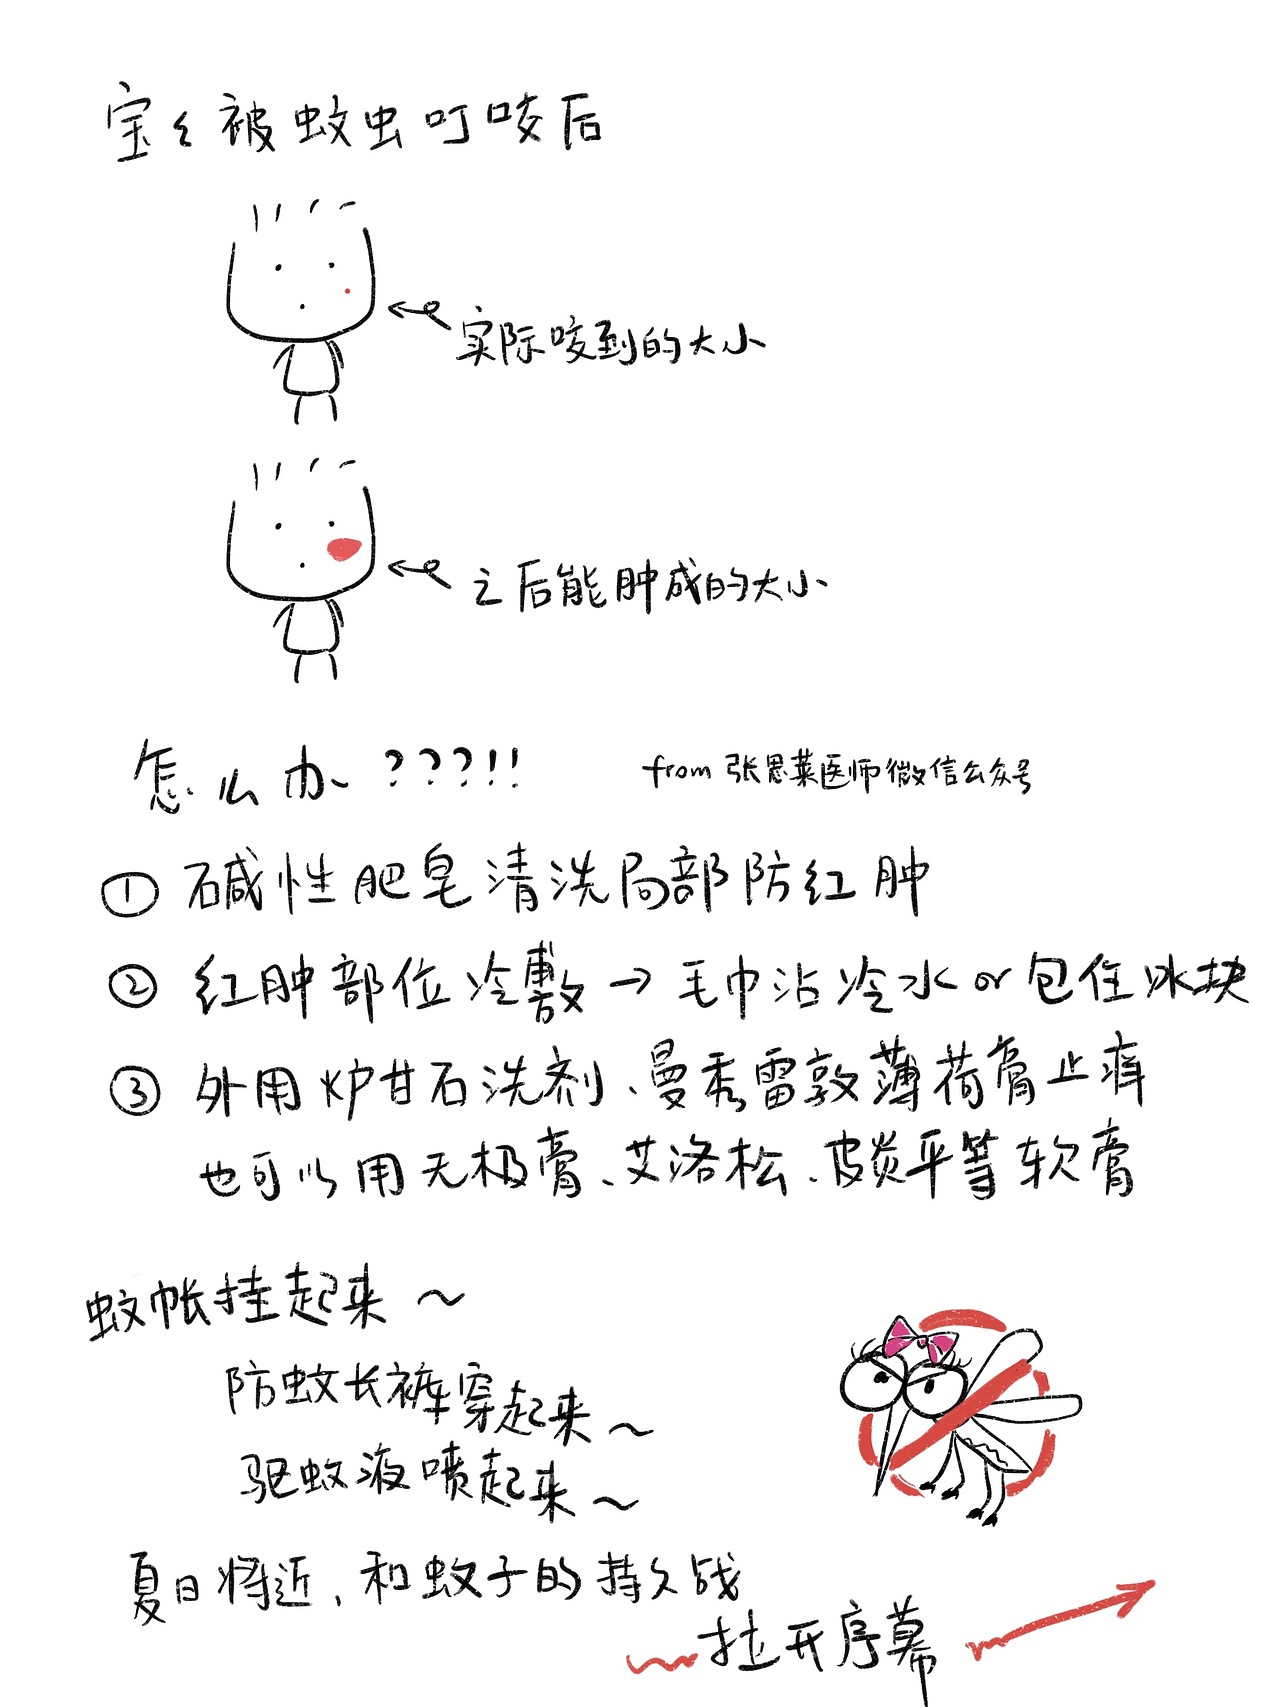 宝々被蚊虫叮咬后
实际咬到的大小
之后能肿成的大小
怎么办???!!
from 张思莱医师微信公众号
① 碱性肥皂清洗局部防红肿
② 红肿部位冷敷→毛巾沾冷水or包住冰块
③ 外用炉甘石洗剂、曼秀雷敦薄荷膏止痒
也可以用无极膏、艾洛松、皮炎平等软膏
蚊帐挂起来～
防蚊长裤穿起来～
驱蚊液喷起来～
夏日将近，和蚊子的持久战
拉开序幕